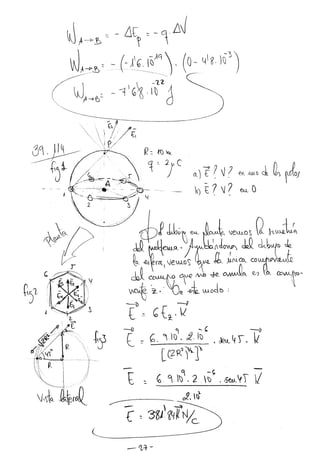 W A→B = - ΔEp = - q ΔV
W A→B = - (-1'6.10⁻¹⁹) . (0 - 4'8.10⁻³)
W A→B = - 7'68.10⁻²² J
39. 114
fig 1
R = 10 m
q = 2 μC
a) E⃗? V? en uno de los polos
b) E⃗? V? en O
planta
Del dibujo en planta vemos la simetría
del problema. Ayudándonos del dibujo de
la esfera, vemos que la única componente
del campo que no se anula es la compo-
nente z. De este modo:
fig 2
E⃗ = 6 Ez . K⃗
fig 3
E⃗ = 6 . 9.10⁹. 2.10⁻⁶ / [(2R²)^½]² . sen 45 . K⃗
E⃗ = 6 . 9.10⁹. 2 10⁻⁶ . sen 45 K⃗ / 2.10²
vista lateral
E⃗ = 381'84 K⃗ N/C
- 27 -